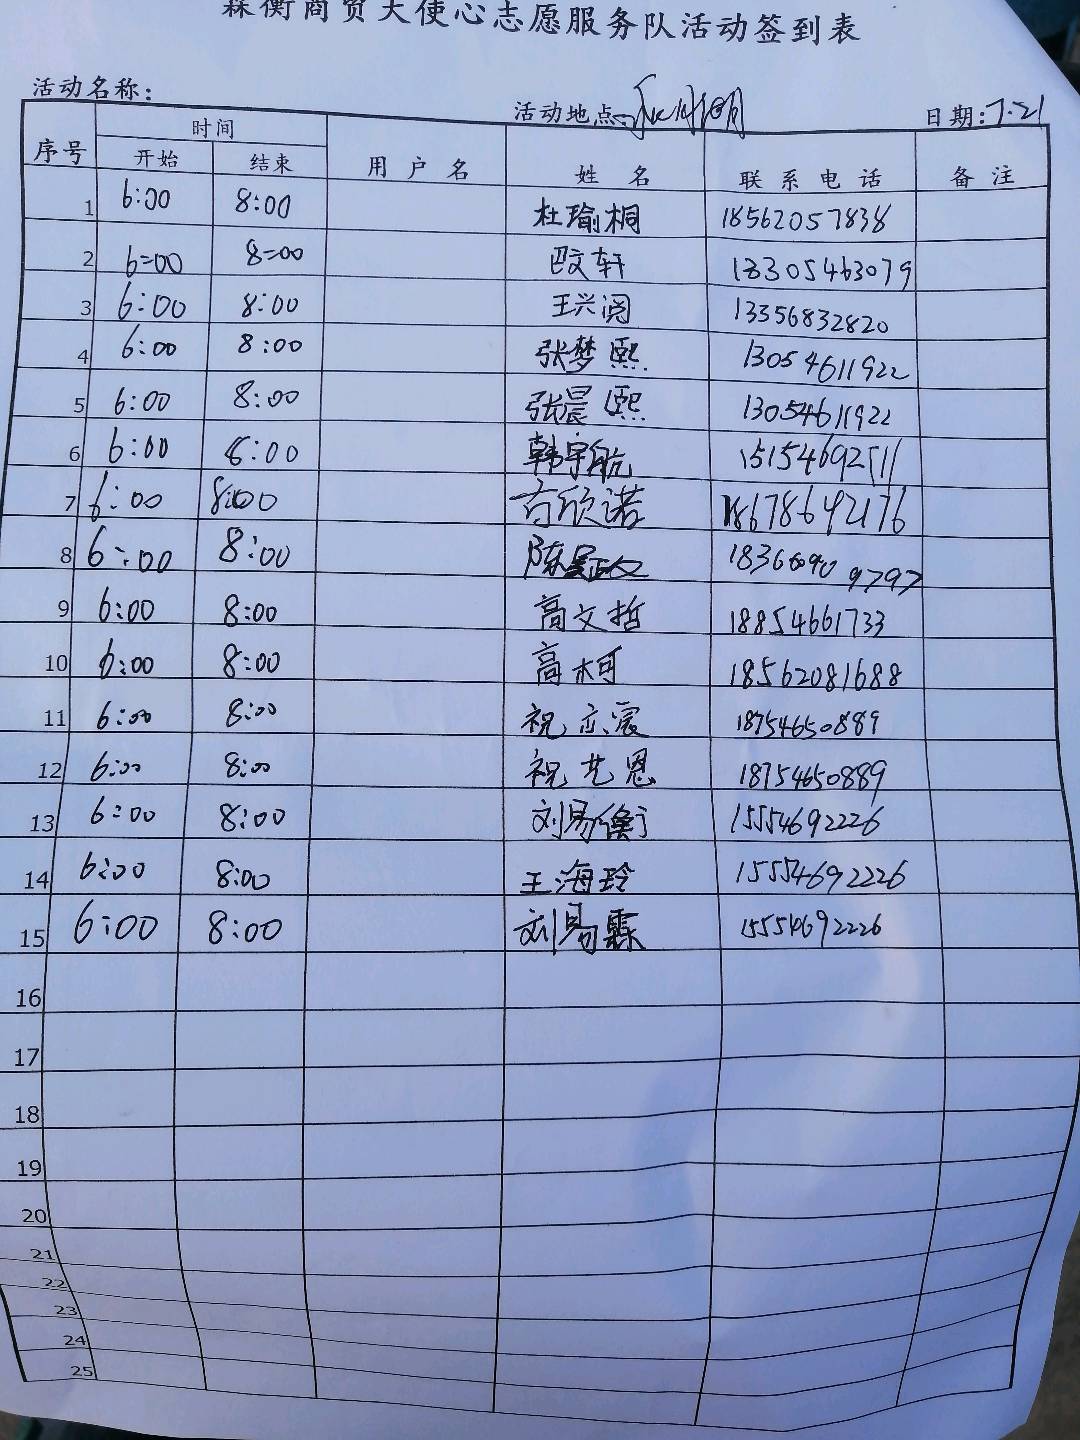 森衡商贸天使心志愿服务队活动签到表
活动名称: 活动地点: 日期:7.21
序号 时间 用户名 姓名 联系电话 备注
开始 结束
1 6:00 8:00 杜瑜桐 18562057838
2 6=00 8=00 巴文轩 18305463079
3 6:00 8:00 王兴阔 13356832820
4 6:00 8:00 张梦熙 13054611922
5 6:00 8:00 张晨熙 13054611922
6 6:00 8:00 韩宇航 15154692511
7 6:00 8:00 苟欣诺 18678692176
8 6:00 8:00 陈 183660909797
9 6:00 8:00 高文哲 18854661733
10 6:00 8:00 高柯 18562081688
11 6:00 8:00 祝亦宸 18754650889
12 6:00 8:00 祝艺恩 18754650889
13 6:00 8:00 刘易衡 15554692226
14 6:00 8:00 王海玲 15554692226
15 6:00 8:00 刘易霖 15554692226
16
17
18
19
20
21
22
23
24
25